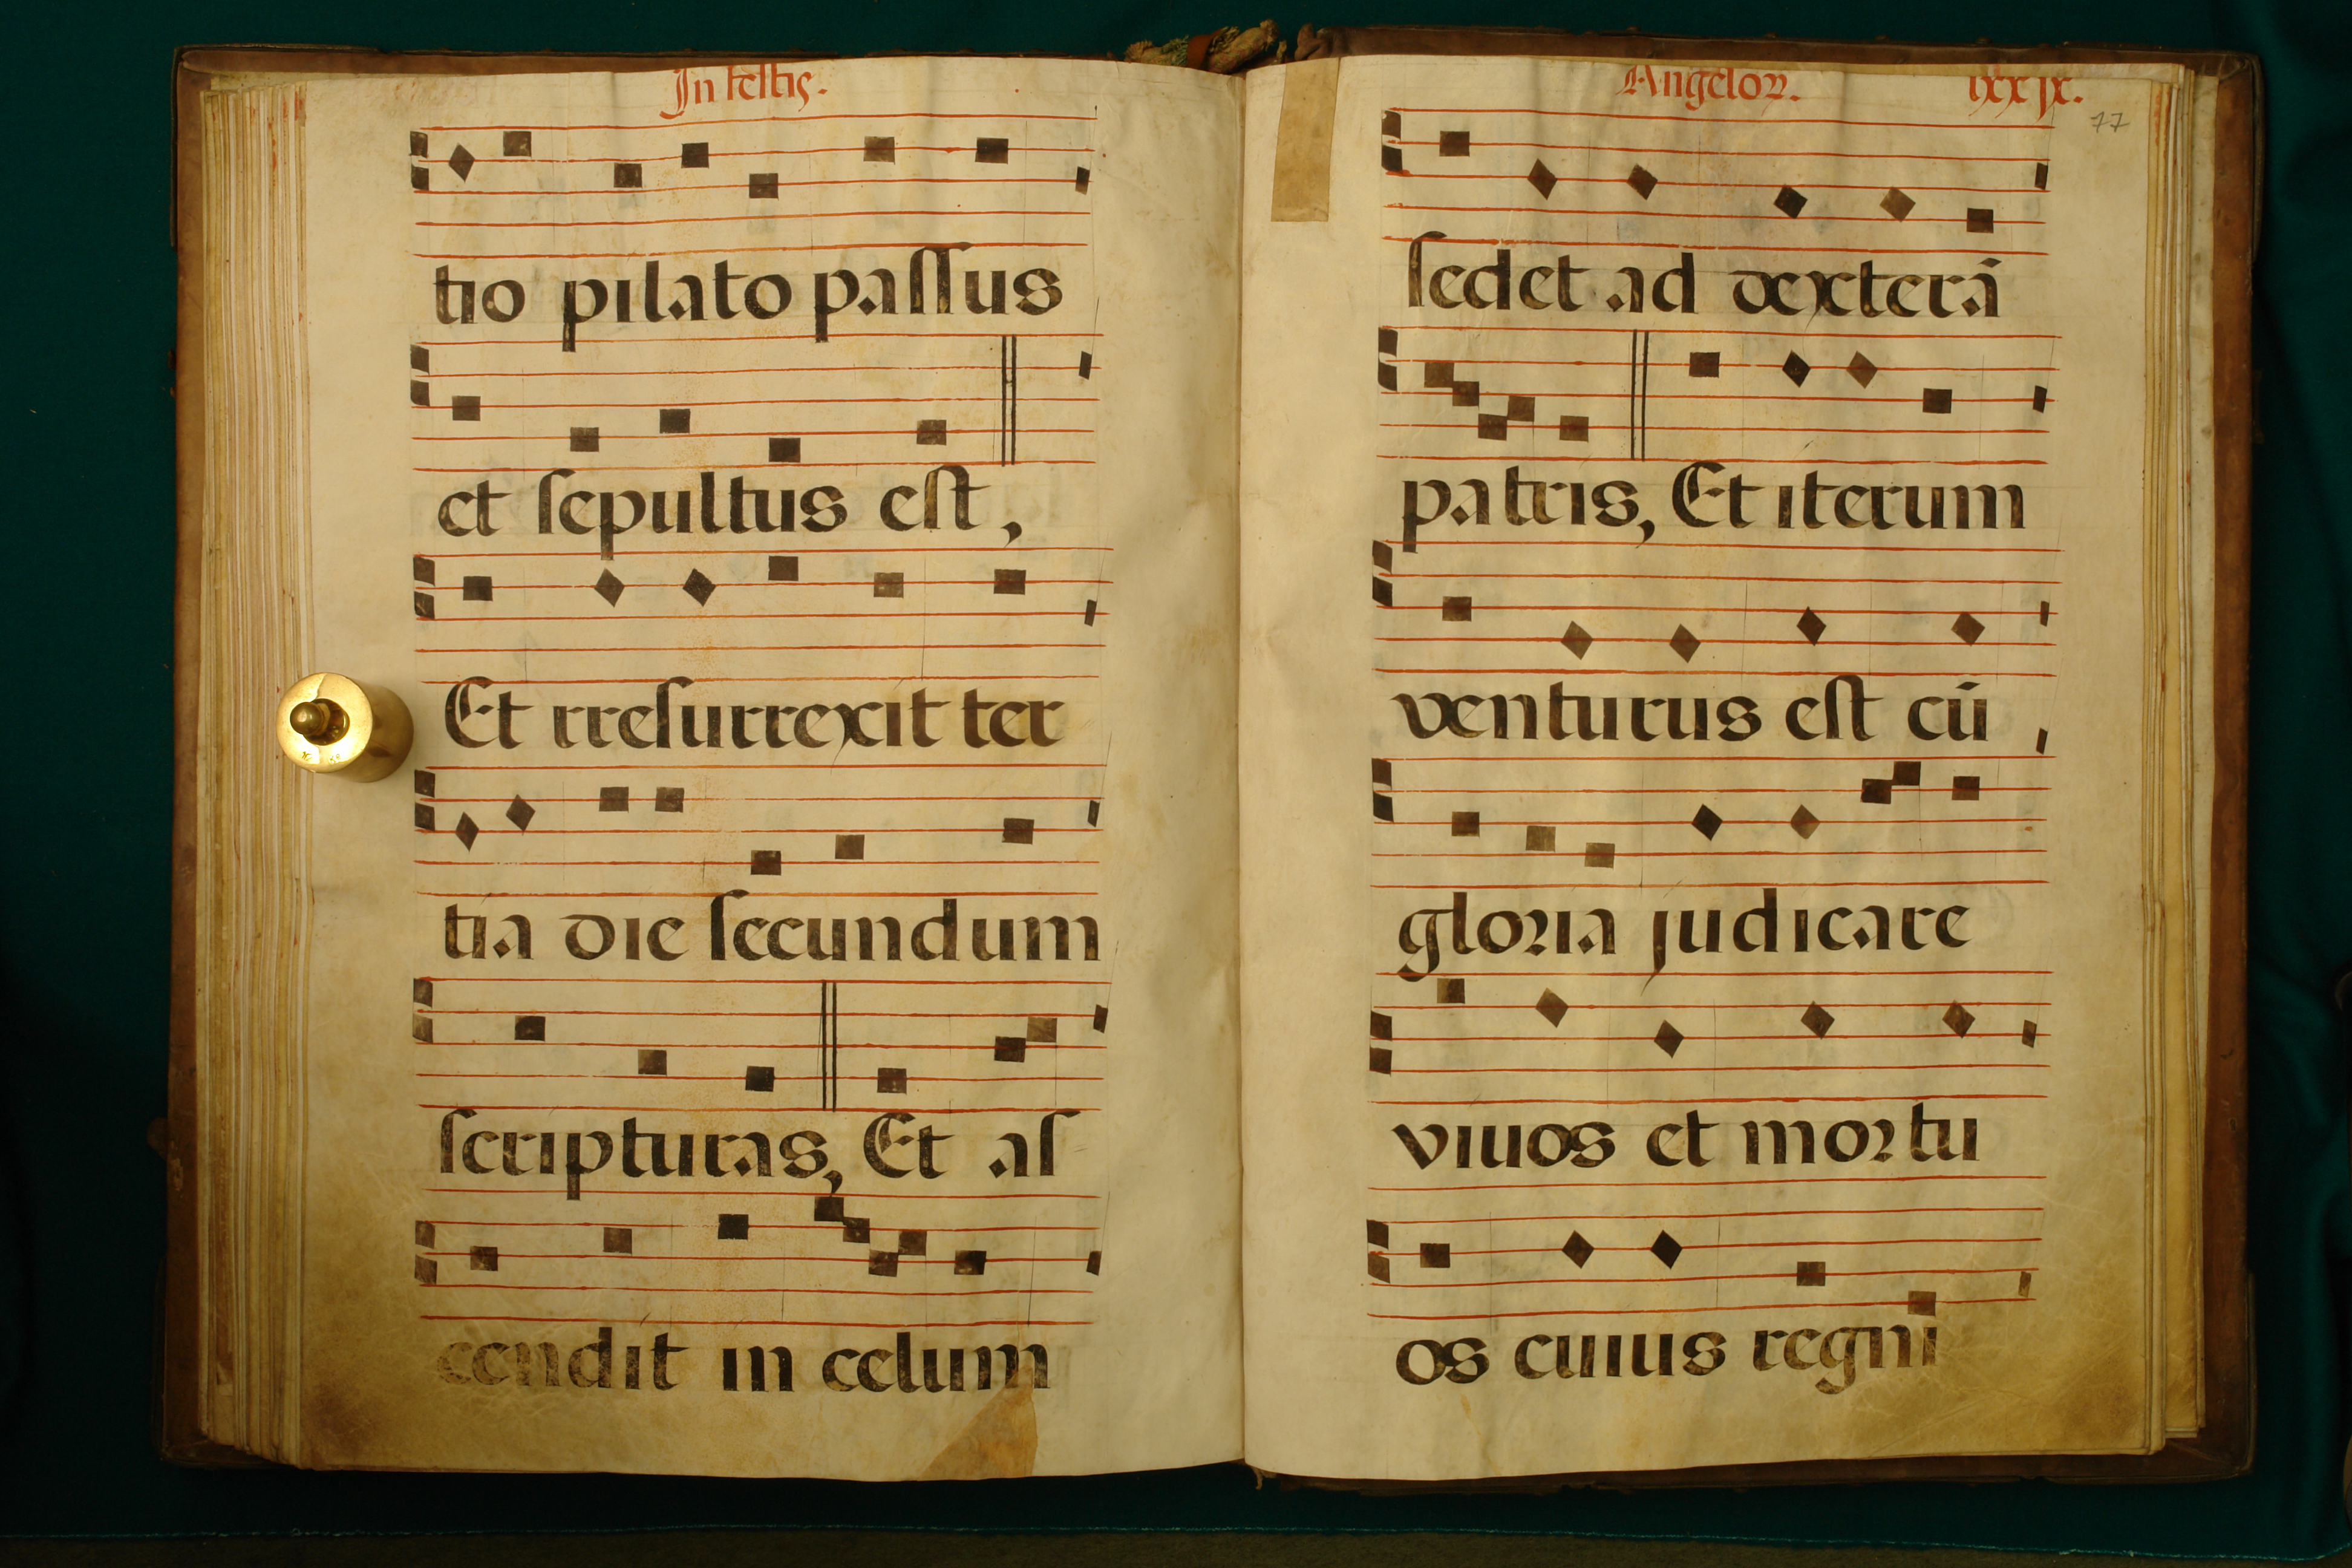 In festis.
tio pilato passus
et sepultus est,
Et rresurrexit ter
tia die secundum
scripturas, Et as
cendit in celum
Angeloꝝ. lxx jx.
77
sedet ad dexterā
patris, Et iterum
venturus est cū
gloria judicare
viuos et mortu
os cuius regni